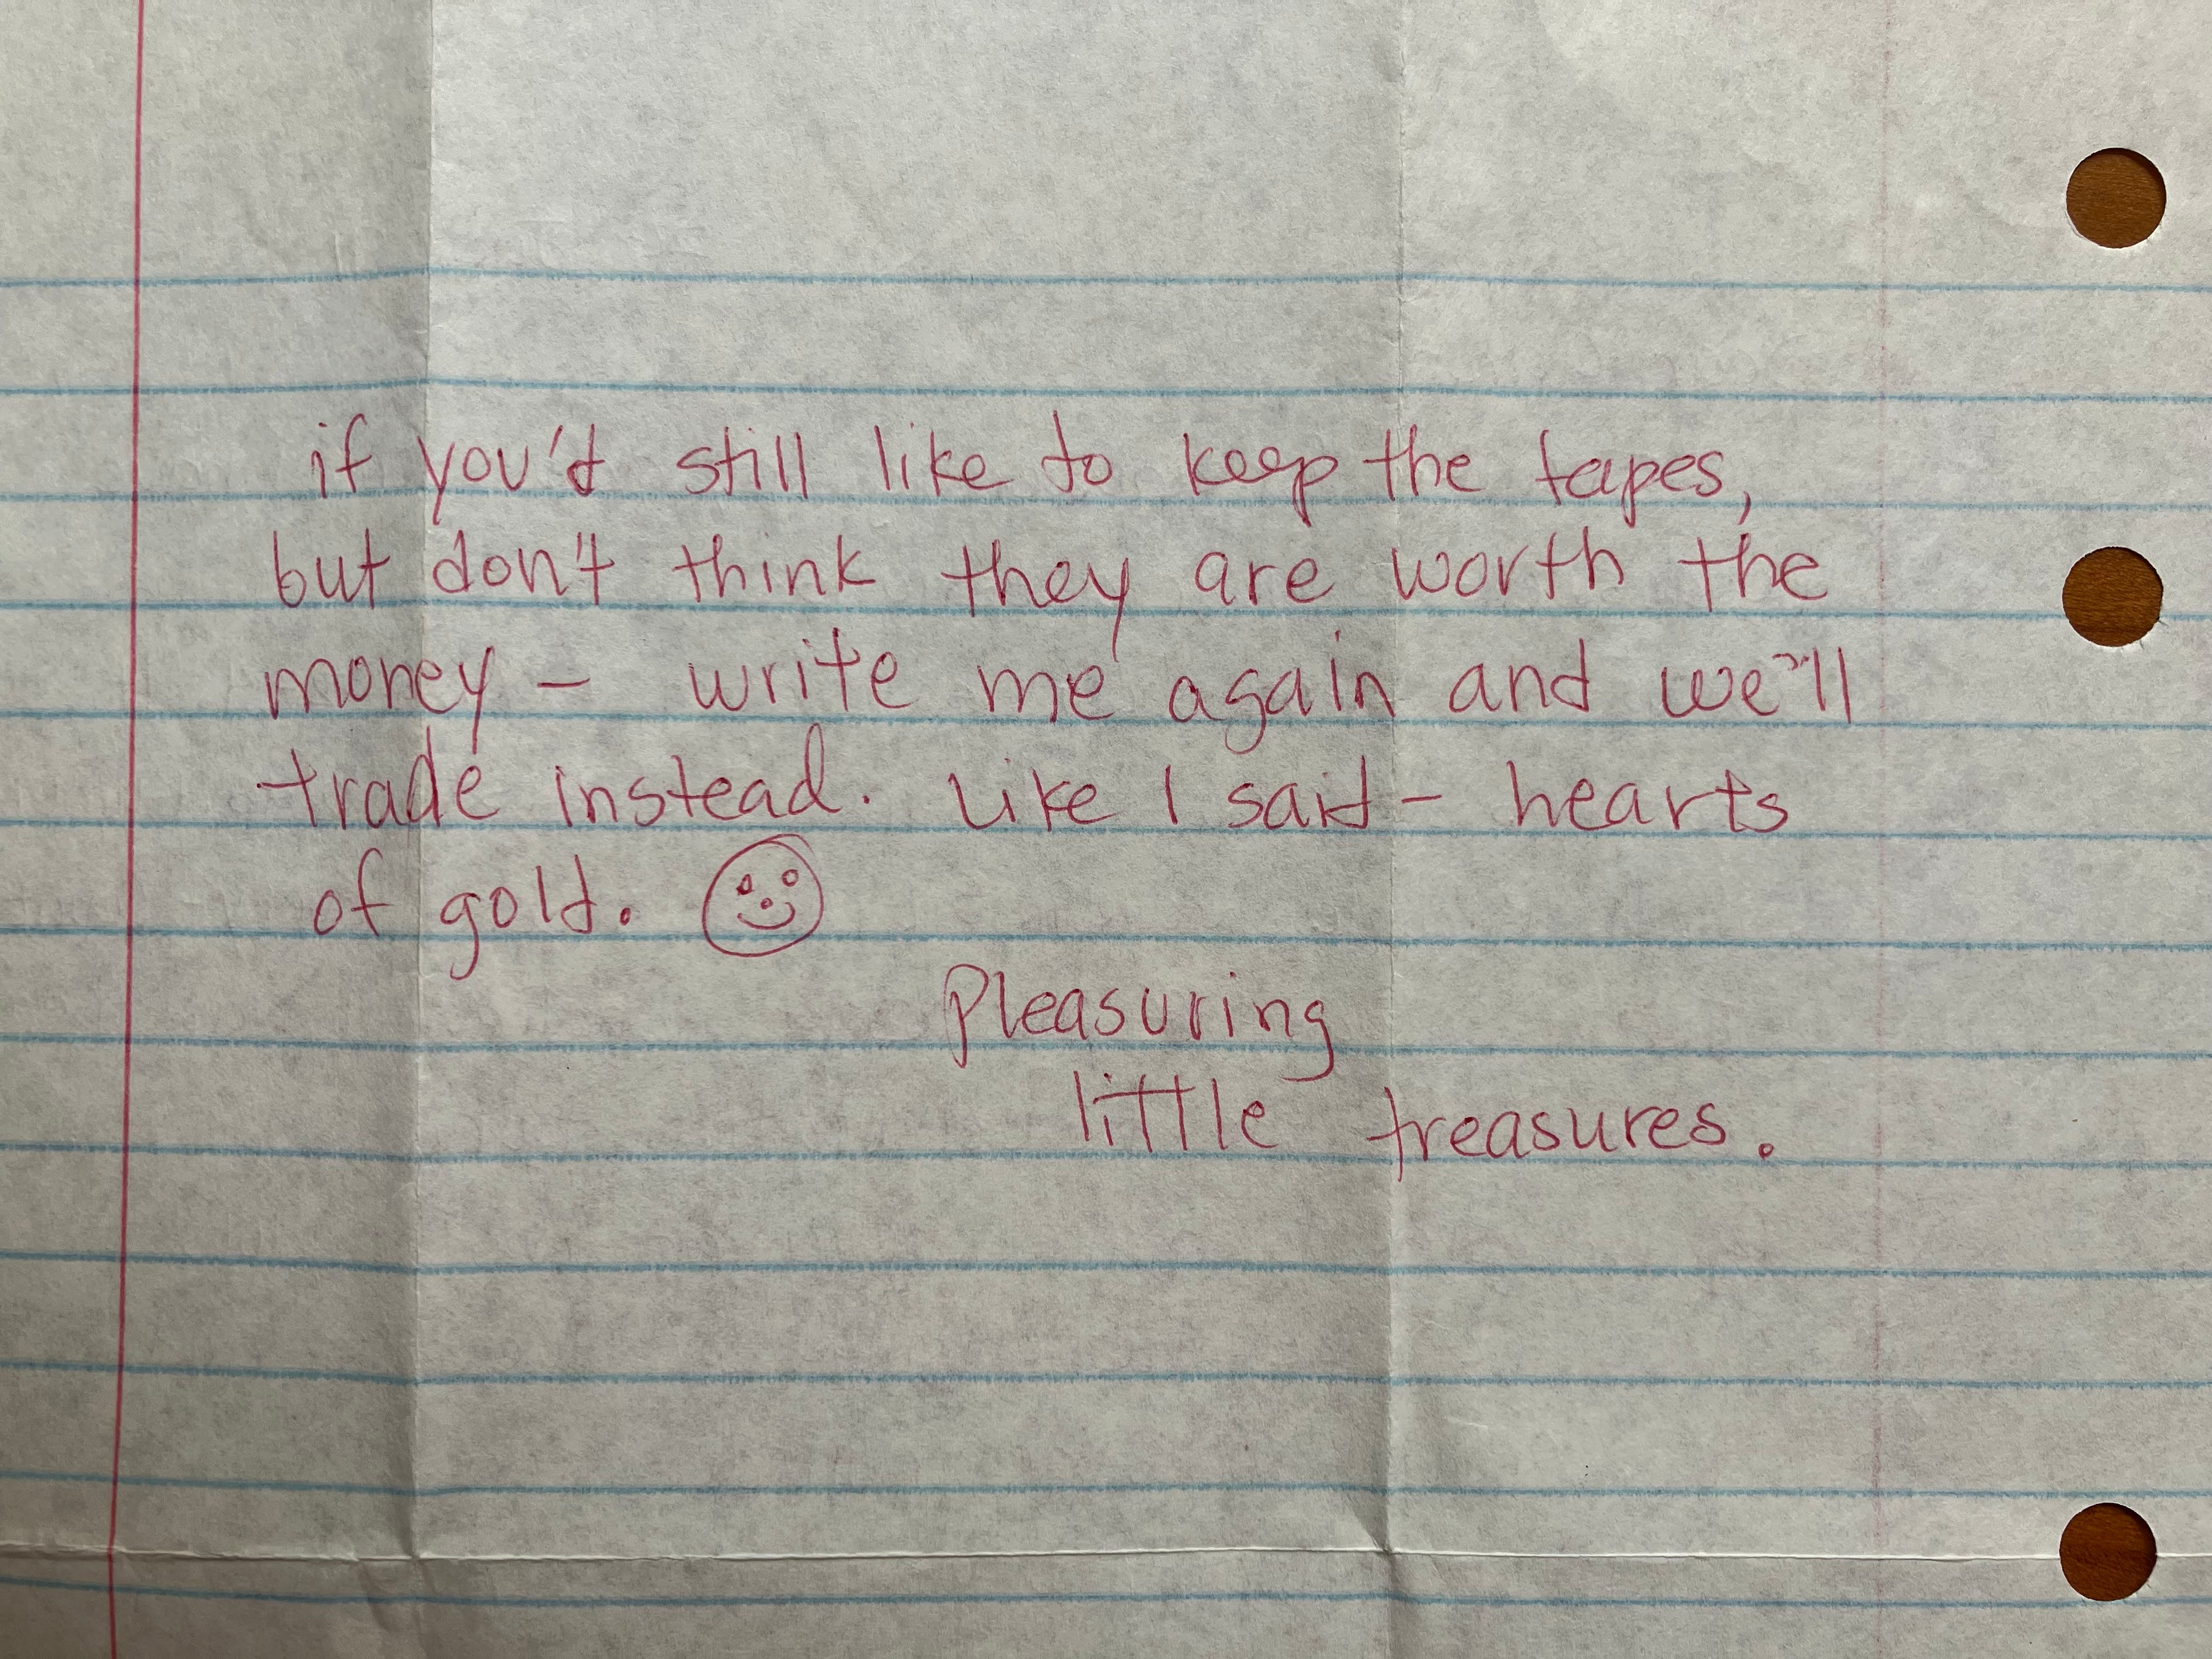 if you'd still like to keep the tapes,
but don't think they are worth the
money – write me again and we'll
trade instead. Like I said – hearts
of gold.
Pleasuring
little treasures.